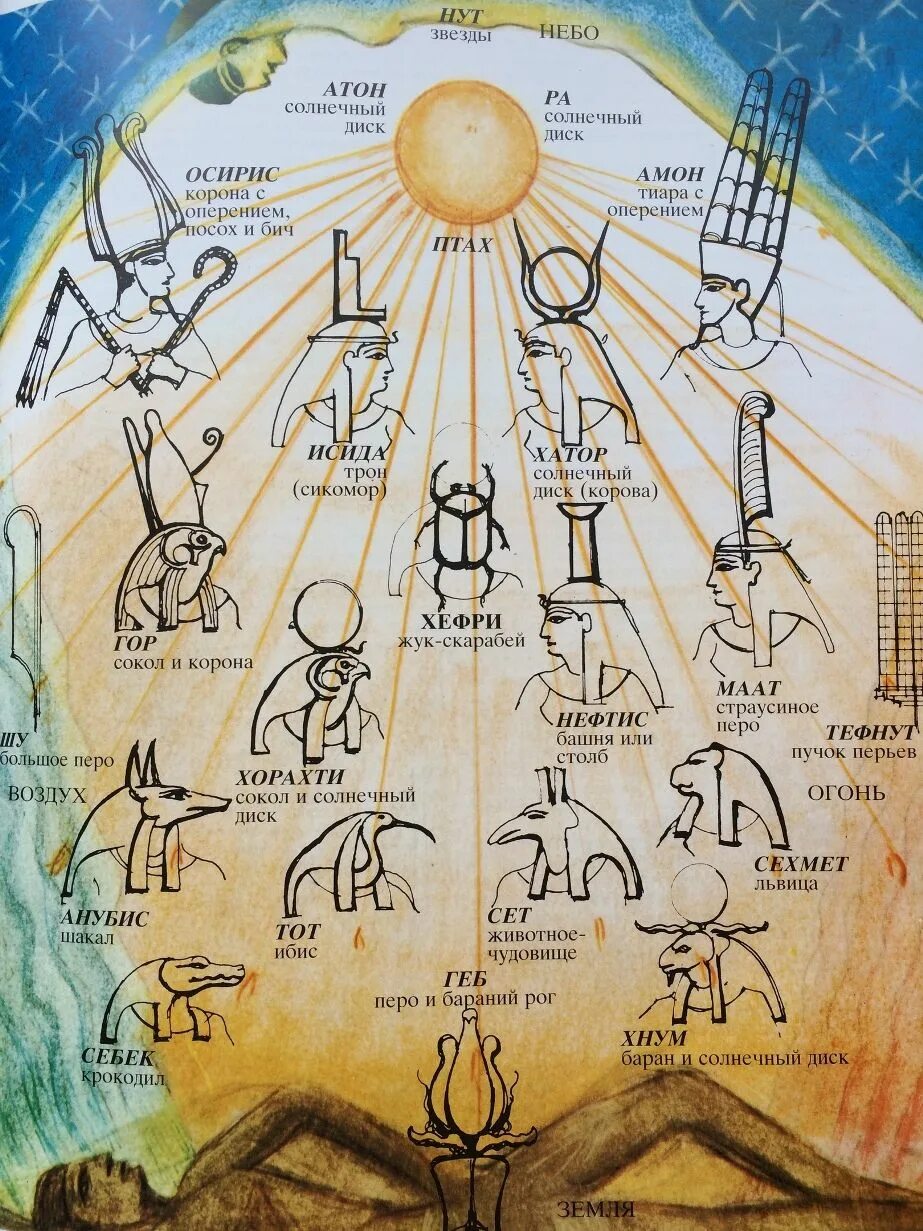 НУТ
звезды
НЕБО
АТОН
солнечный
диск
РА
солнечный
диск
ОСИРИС
корона с
оперением,
посох и бич
АМОН
тиара с
оперением
ПТАХ
ИСИДА
трон
(сикомор)
ХАТОР
солнечный
диск (корова)
ГОР
сокол и корона
ХЕФРИ
жук-скарабей
МААТ
страусиное
перо
НЕФТИС
башня или
столб
ШУ
большое перо
ВОЗДУХ
ТЕФНУТ
пучок перьев
ОГОНЬ
ХОРАХТИ
сокол и солнечный
диск
СЕХМЕТ
львица
АНУБИС
шакал
ТОТ
ибис
СЕТ
животное-
чудовище
ГЕБ
перо и бараний рог
ХНУМ
баран и солнечный диск
СЕБЕК
крокодил
ЗЕМЛЯ